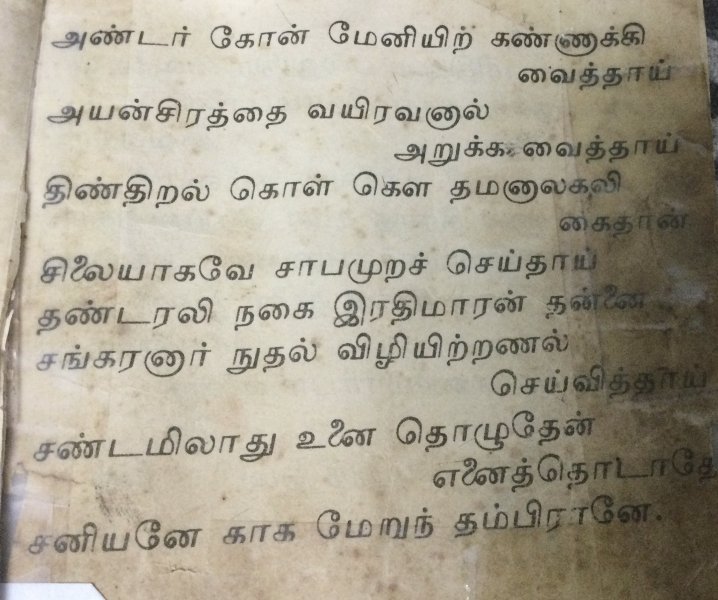 அண்டர் கோன் மேனியிற் கண்ணுக்கி
வைத்தாய்
அயன்சிரத்தை வயிரவனால்
அறுக்க வைத்தாய்
திண்திறல் கொள் கௌ தமனாலகலி
கைதான்
சிலையாகவே சாபமுறச் செய்தாய்
தண்டரலி நகை இரதிமாரன் தன்னை
சங்கரனார் நுதல் விழியிற்றணல்
செய்வித்தாய்
சண்டமிலாது உனை தொழுதேன்
எனைத்தொடாதே
சனியனே காக மேறுந் தம்பிரானே.